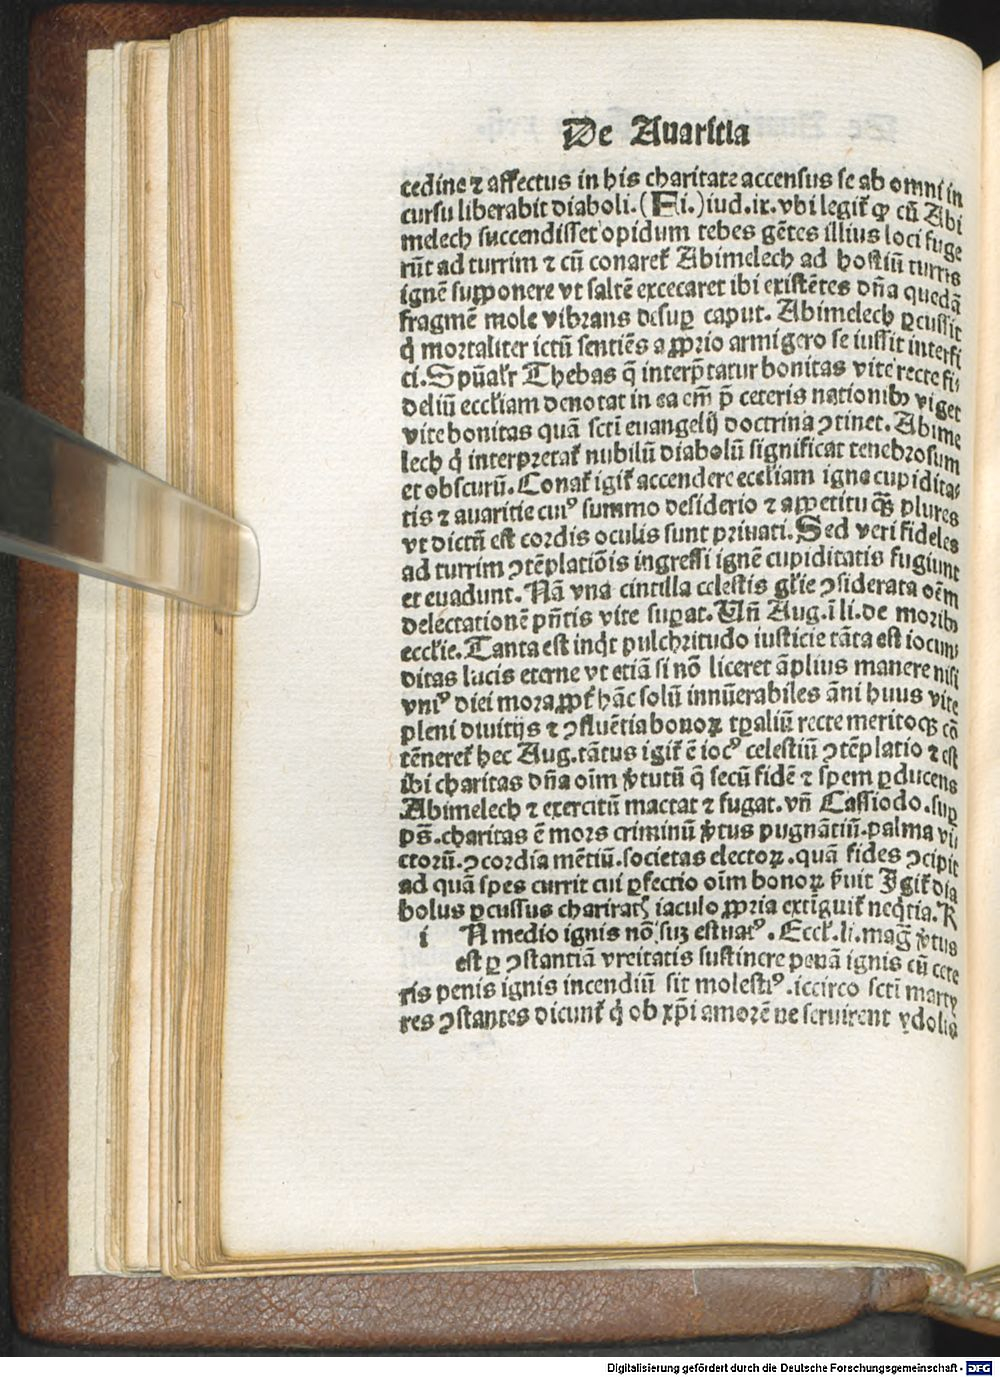 De Auaritia
cedine ⁊ affectus in his charitate accensus se ab omni in
cursu liberabit diaboli. (Fi.) iud. ix. vbi legit᷑ ꝙ cū Abi
melech succendisset opidum tebes gētes illius loci fuge
rūt ad turrim ⁊ cū conaret᷑ Abimelech ad hostiū turris
ignē supponere vt saltē excecaret ibi existētes dn̄a quedā
fragmē mole vibrans desuꝑ caput. Abimelech ꝑcussit
q̇ mortaliter ictū sentiēs a ꝓprio armigero se iussit interfi
ci. Spūalr̄ Thebas q̄ interp̄tatur bonitas vite recte fi⸗
deliū eccl'iam denotat in ea em̄ p̄ ceteris nationibꝰ viget
vite bonitas quā scti euangelij doctrina ꝯtinet. Abime
lech q̇ interpretat᷑ nubilū diabolū significat tenebrosum
et obscurū. Conat᷑ igit᷑ accendere eccl'iam igne cupidita⸗
tis ⁊ auaritie cuiꝰ summo desiderio ⁊ appetitu q̄s plures
vt dictū est cordis oculis sunt priuati. Sed veri fideles
ad turrim ꝯtēplatiōis ingressi ignē cupiditatis fugiunt
et euadunt. Nā vna cintilla celestis gl'ie ꝯsiderata oēm
delectationē pn̄tis vite suꝑat. Vn̄ Aug. ī li. de moribꝰ
eccl'ie. Tanta est inq̇t pulchritudo iusticie tāta est iocun⸗
ditas lucis eterne vt etiā si nō liceret āplius manere nisi
vniꝰ diei mora ꝓpt᷑ hāc solū innūerabiles āni huus vite
pleni diuitijs ⁊ ꝯfluētia bonoꝝ tꝑaliū recte meritoqꝫ cō
tēneret᷑ hec Aug. tātus igit᷑ ē iocꝰ celestiū ꝯtēplatio ⁊ est
ibi charitas dn̄a oīm v̓tutū q̄ secū fidē ⁊ spem ꝑducens
Abimelech ⁊ exercitū mactat ⁊ fugat. vn̄ Cassiodo. suꝑ
ps̄. charitas ē mors criminū v̓tus pugnātiū. palma vi
ctorū. ꝯcordia mētiū. societas electoꝝ. quā fides ꝯcipit
ad quā spes currit cui ꝑfectio oīm bonoꝝ s̓uit Igit᷑ dia
bolus ꝑcussus charitatꝭ iaculo ꝓpria extīguit᷑ neq̇tia. R
i N medio ignis nō suꝫ estuatꝰ. Eccl'. li. maḡ v̓tus
est ꝑ ꝯstantiā vʼitatis sustinere penā ignis cū cete
ris penis ignis incendiū sit molestiꝰ. iccirco scti marty
res ꝯstantes dicunt᷑ q̇ ob xp̄i amorē ne seruirent ydolis
Digitalisierung gefördert durch die Deutsche Forschungsgemeinschaft - DFG